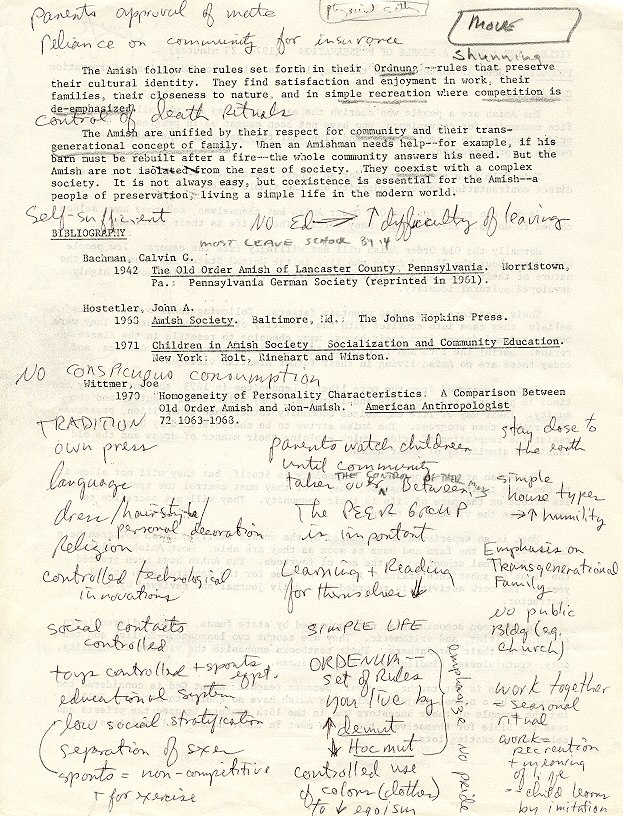 Parents approval of mate
physical
MOVE
Reliance on community for insurance
Shunning
The Amish follow the rules set forth in their Ordnung--rules that preserve
their cultural identity. They find satisfaction and enjoyment in work, their
families, their closeness to nature, and in simple recreation where competition is
de-emphasized.
Control of death Rituals
The Amish are unified by their respect for community and their trans-
generational concept of family. When an Amishman needs help--for example, if his
barn must be rebuilt after a fire--the whole community answers his need. But the
Amish are not isolated from the rest of society. They coexist with a complex
society. It is not always easy, but coexistence is essential for the Amish--a
people of preservation, living a simple life in the modern world.
Self-sufficient
NO Ed => ↑ difficulty of leaving
MOST LEAVE SCHOOL BY 14
BIBLIOGRAPHY
Bachman, Calvin G.
1942 The Old Order Amish of Lancaster County, Pennsylvania. Norristown,
Pa.: Pennsylvania German Society (reprinted in 1961).
Hostetler, John A.
1963 Amish Society. Baltimore, Md.. The Johns Hopkins Press.
1971 Children in Amish Society. Socialization and Community Education.
New York: Holt, Rinehart and Winston.
NO CONSPICUOUS CONSUMPTION
Wittmer, Joe
1970 Homogeneity of Personality Characteristics. A Comparison Between
Old Order Amish and Non-Amish. American Anthropologist
72 1063-1068.
TRADITION
own press
language
dress/hairstyle/
personal decoration
Religion
controlled technological
innovations
social contacts
controlled
toys controlled + sports eqpt.
educational system
low social stratification
separation of sexes
sports = non-competitive
↑ for exercise
parents watch children
until community
takes over
THE CONTROL OF THEIR
Between
The PEER GROUP
is important
Learning + Reading
for themselves ↓
SIMPLE LIFE
ORDENUM -
set of Rules
you live by
↑ demut
↓ Hocmut
emphasize NO pride
controlled use
of colors (clothes)
to ↓ egoism
stay close to
the earth
simple
house types
→ ↑ humility
Emphasis on
Transgenerational
Family
No public
Bldg (eg.
church)
work together
= seasonal
ritual
work =
recreation
+ meaning
of life
- child learns
by imitation